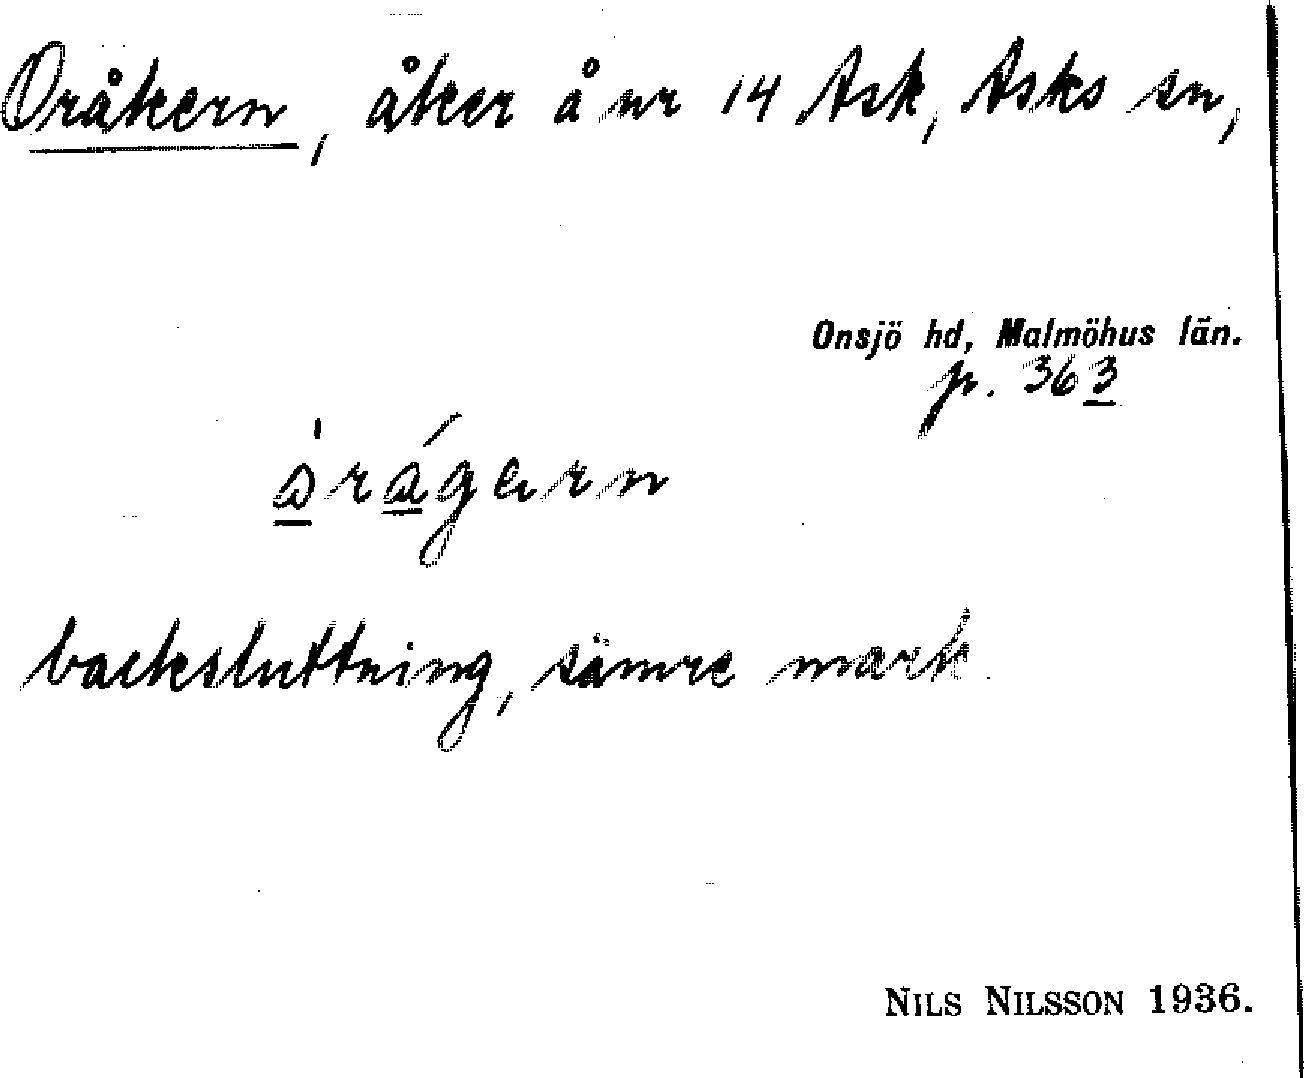 Oråkern, åker å nr 14 Ask, Asks sn,
Onsjö hd, Malmöhus län.
p. 363
backsluttning, sämre mark.
NILS NILSSON 1936.